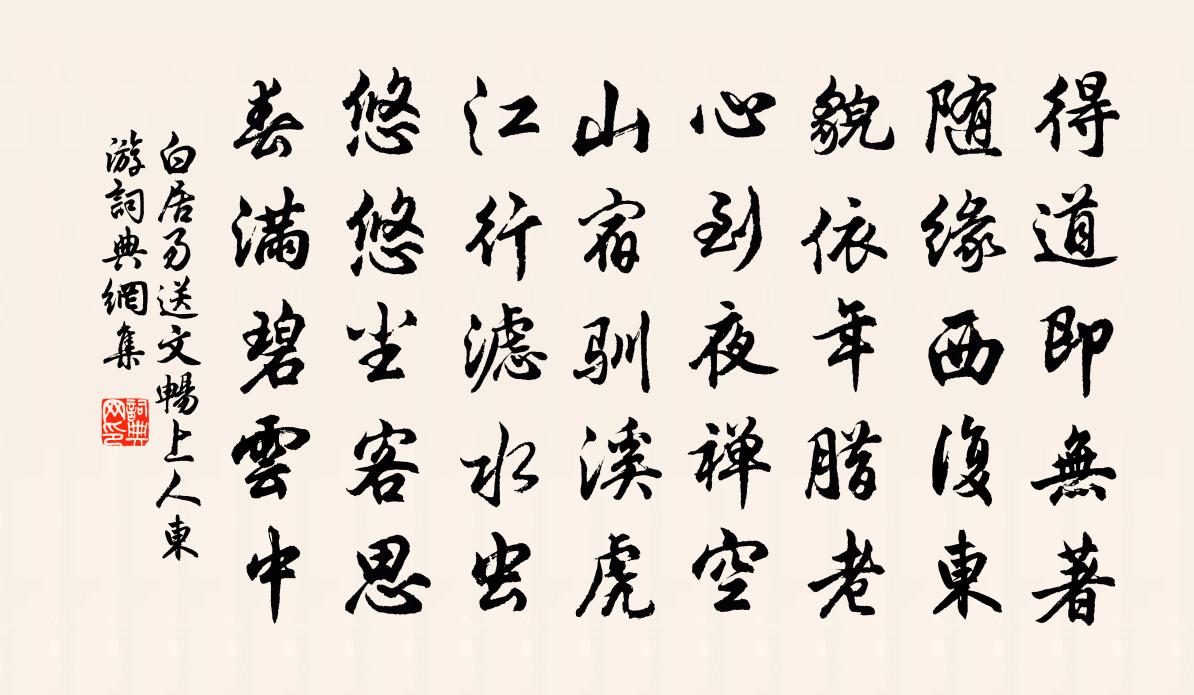 得道即無著
随縁西復東
貌依年腊老
心到夜禅空
山宿馴溪虎
江行濾水虫
悠悠尘客思
春满碧雲中
白居易送文暢上人東
游詞典網集
詞典
网印